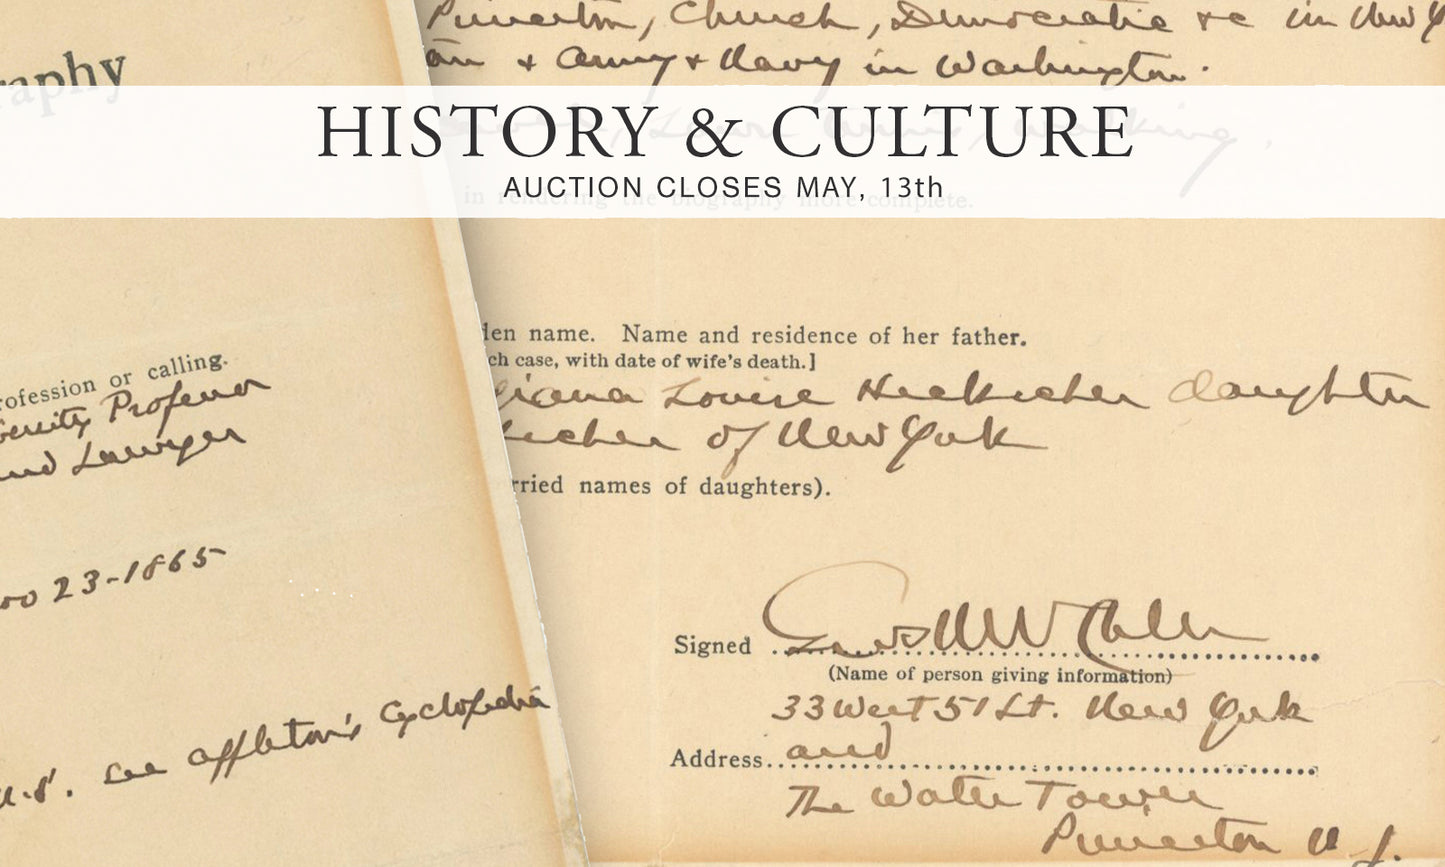 Princeton, Church, Democratic &c in New Y
& Army & Navy in Washington.
HISTORY & CULTURE
AUCTION CLOSES MAY, 13th
in rendering the biography more complete.
raphy
rofession or calling.
versity Professor
and Lawyer
23-1865
See Appleton's Cyclopedia
den name. Name and residence of her father.
ch case, with date of wife's death.]
giana Louise Heckscher daughter
kscher of New York
rried names of daughters).
Signed
(Name of person giving information)
33 West 51 St. New York
Address and
The Water Tower
Princeton N. J.